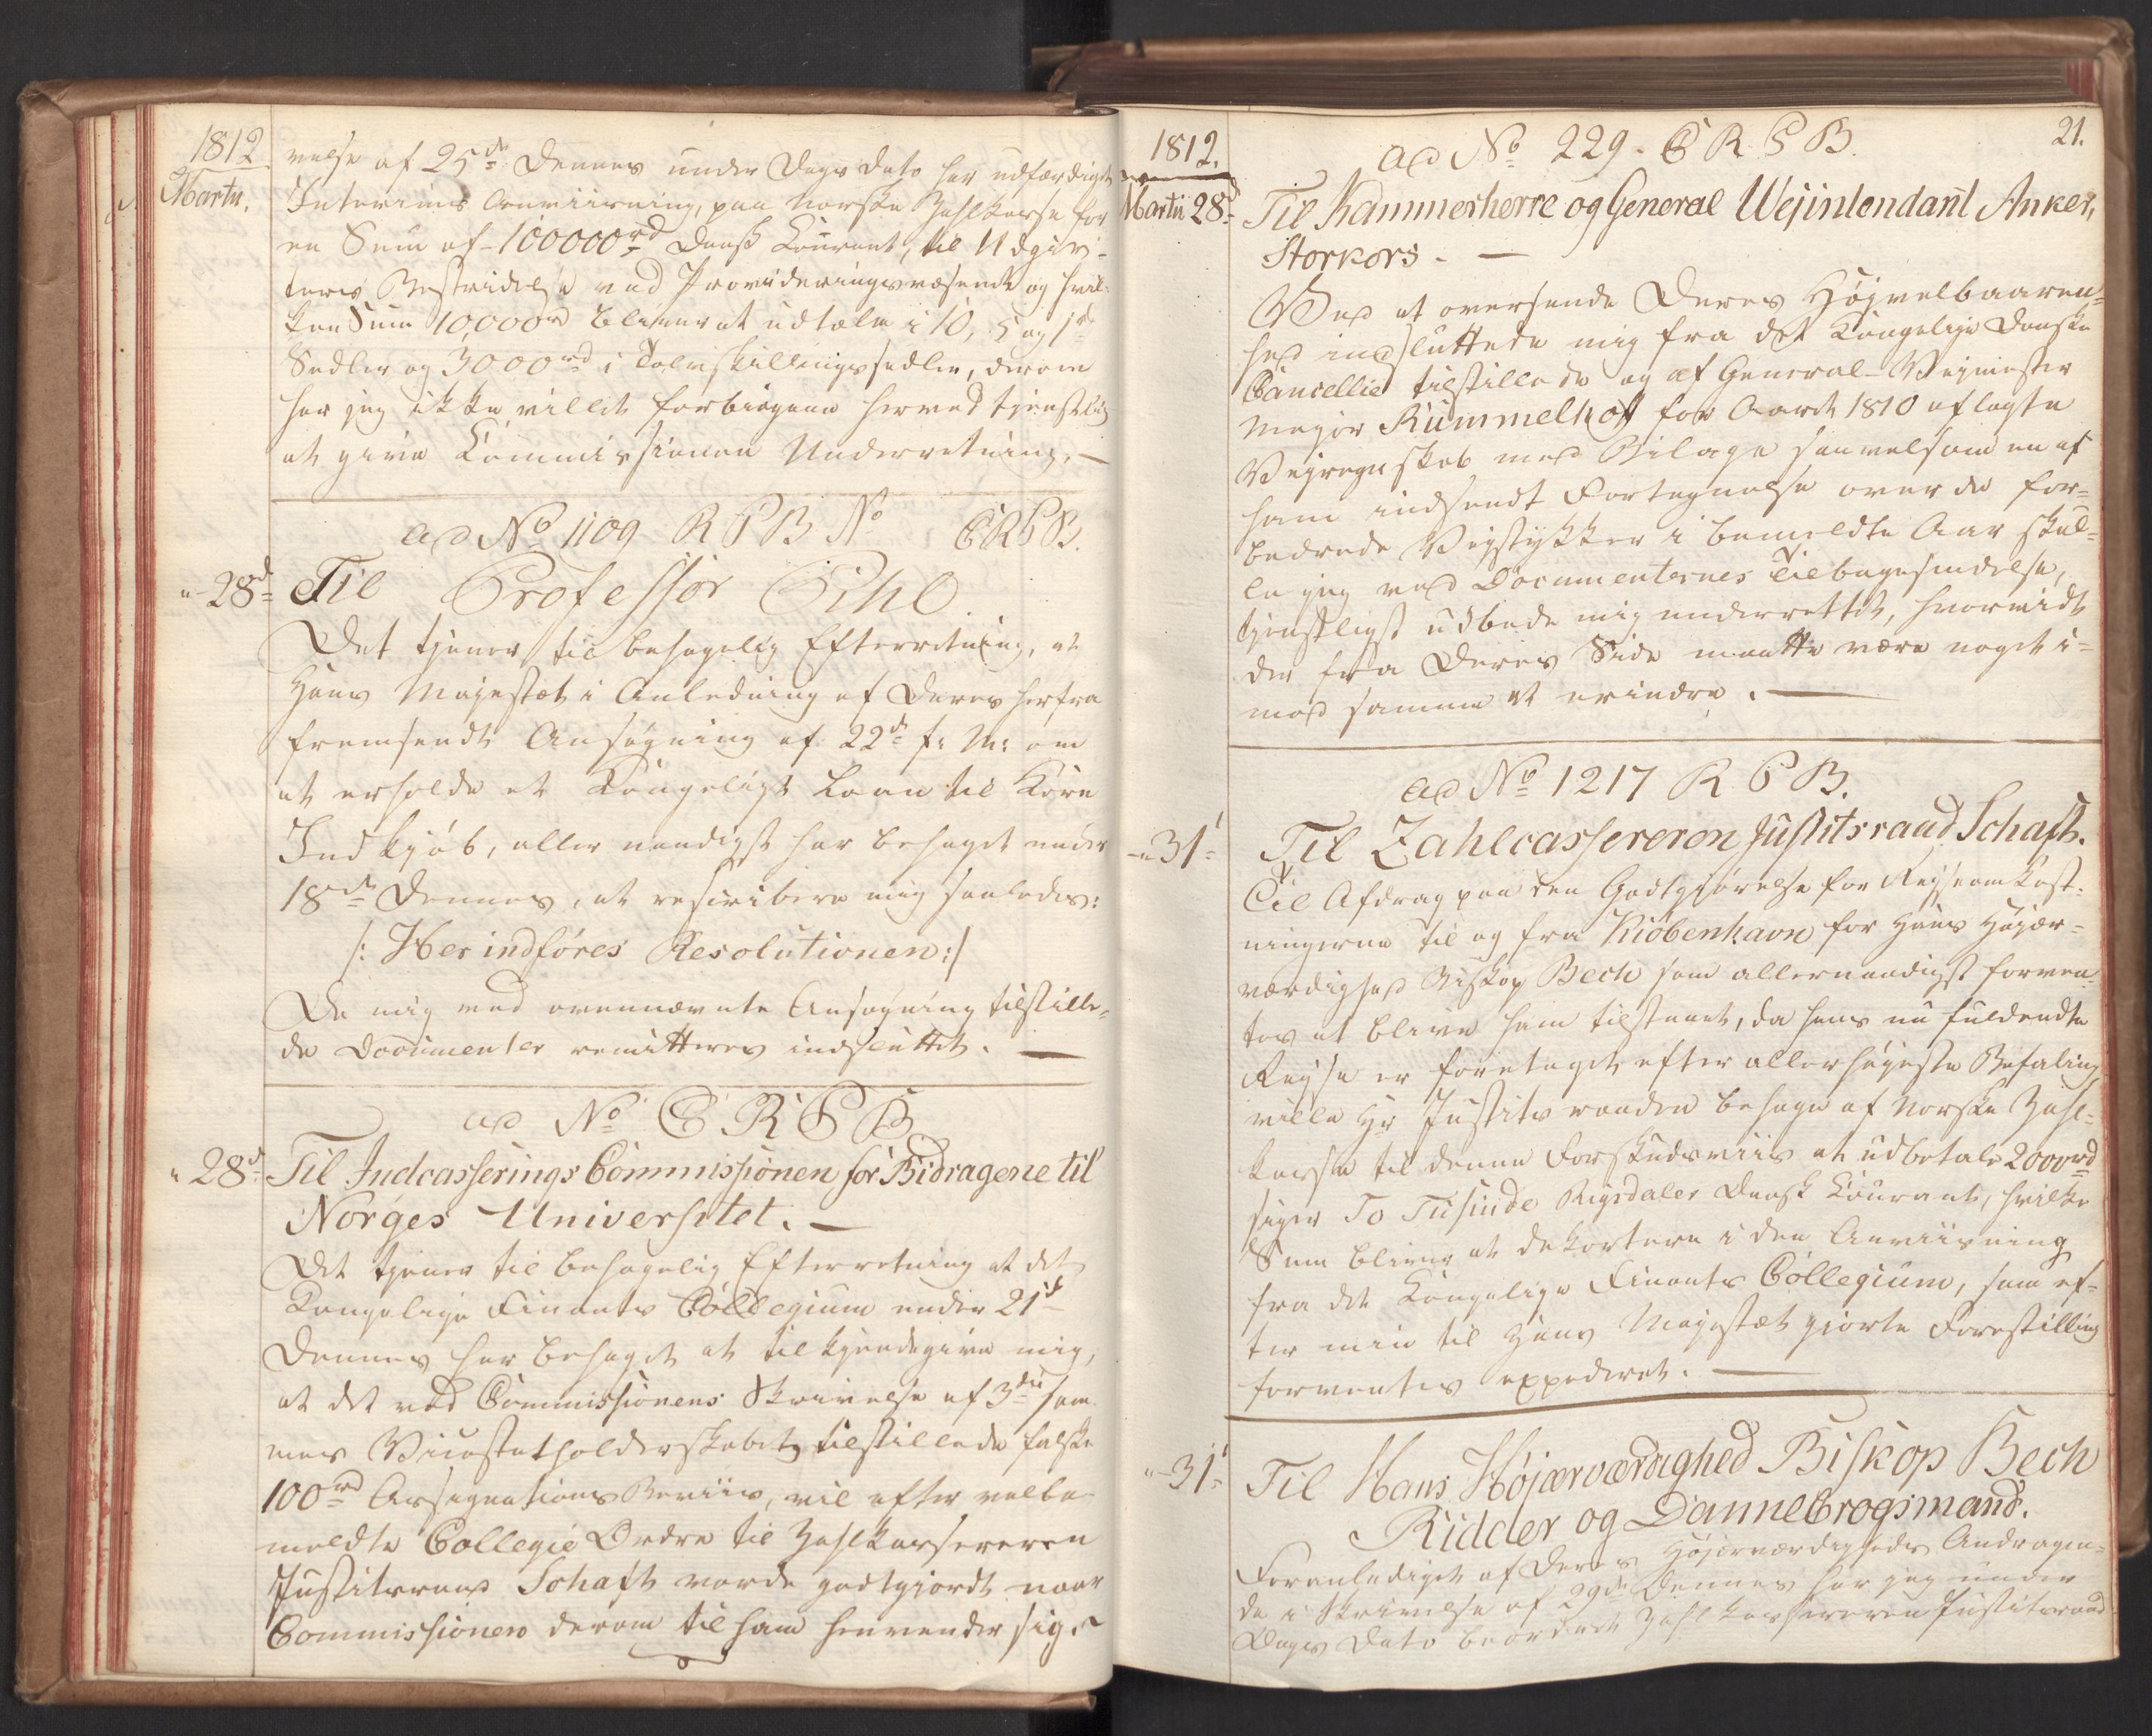 1812
Martii.
velse af 25de Dennes under Dags Dato har udfærdiget
Interims Anviisning, paa Norske Zahlkasse for
en Sum af 100000rd Dansk Kourant, til Udgif-
ternes Bestridelse ved Provideringsvæsenet og hvil-
ken Sum 10,000rd bliver at udtælle i 10, 5 og 1rd
Sedler og 3000rd i Tolvskillingssedler, derom
har jeg ikke villet forbiegaae herved tjenstlig
at give Kommissionen Underretning. —
ad No 1109 R P B No CRPB.
" 28d Til Professor Pihl.
Det tjener til behagelig Efterretning, at
Hans Majestæt i Anledning af Deres herfra
fremsendte Ansøgning af 22de f: M: om
at erholde et Kongeligt Laan til Korn
Indkjøb, aller naadigst har behaget under
18de Dennes, at rescribere mig saaledes:
/: Her indføres Resolutionen :/
De mig med ovennævnte Ansøgning tilstille-
de Documenter remitteres indsluttet. —
ad No C R P B
" 28d Til Indcasserings Commissionen for Bidragene til
Norges Universitet. —
Det tjener til behagelig Efterretning at det
Kongelige Finants Collegium under 21de
Dennes har behaget at tilkjendegive mig,
at det ved Commissionens Skrivelse af 3die sam-
mes Vicestatholderskabet tilstillede falske
100rd Assignations Beviis, vil efter velbe-
meldte Collegii Ordre til Zahlkassereren
Justitsraad Schaft vorde godtgjordt naar
Commissionen derom til ham henvender sig.
21.
1812.
ad No 229. C R P B.
Martii 28d Til Kammerherre og General Wejintendant Anker,
Storkors. —
Ved at oversende Deres Højvelbaaren-
hed indsluttede mig fra det Kongelige Danske
Cancellie tilstillede og af General-Veimester
Major Rummelhoff for Aaret 1810 aflagte
Vejregnskab med Bilage saavelsom en af
ham indsendt Fortegnelse over de for-
bedrede Vejstykker i bemeldte Aar skul-
le jeg ved Documenternes Tilbagesendelse,
tjenstligst udbede mig underrettet, hvorvidt
der fra Deres Side maatte være noget i-
mod samme at erindre. —
ad No 1217 R P B.
" 31' Til Zahlcassereren Justitsraad Schaft.
Til Afdrag paa den Godtgjørelse for Rejseomkost-
ningerne til og fra Kiöbenhavn for Hans Højær-
værdighed Biskop Bech som allernaadigst forven-
tes at blive ham tilstaaet, da hans nu fuldendte
Rejse er foretaget efter allerhøjeste Befaling
ville Hr Justitsraaden behage af Norske Zahl-
kasse til denne Forskudsviis at udbetale 2000rd
siger To Tusinde Rigsdaler Dansk Kourant, hvilken
Sum bliver at dekortere i den Anviisning
fra det Kongelige Finants Collegium, som ef-
ter min til Hans Majestæt gjorte Forestilling
forventes expederet. —
" 31' Til Hans Højærværdighed Biskop Bech
Ridder og Dannebrogsmand.
Foranlediget af Deres Højærværdigheds Andragen-
de i Skrivelse af 29de Dennes har jeg under
Dags Dato beordret Zahlkassereren Justitsraad